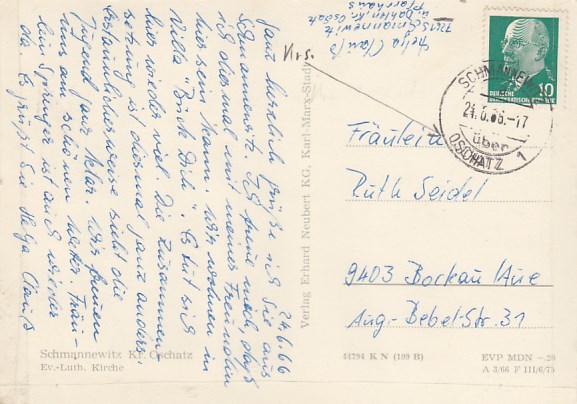 24.6.66
Ganz herzlich grüße ich Sie aus
Schmannewitz. Ich freue mich, daß
ich diesmal mit meiner Freundin
hier sein kann. Wir wohnen in
Villa "Bück Dich". Es tut sich
hier wieder viel. Die Zusammen-
setzung ist diesmal ganz anders.
Erstaunlicherweise sieht die
Jugend ganz klar. Wir freuen
uns am schönen Wetter. Fräu-
lein Sprenger ist auch wieder
da. Es grüßt Sie Helga Clauß
Schmannewitz Kr. Oschatz
Ev.-Luth. Kirche
Verlag Erhard Neubert KG, Karl-Marx-Stadt
Helga Clauß
7261 Schmannewitz
ü. Dahlen, Kr. Oschatz
Pfarrhaus
Krs.
SCHMANNEWITZ
24.6.66.-17
über
OSCHATZ 1
10
DEUTSCHE
DEMOKRATISCHE REPUBLIK
Fräulein
Ruth Seidel
9403 Bockau/Aue
Aug.-Bebel-Str. 31
44794 K N (109 B)
EVP MDN -.20
A 3/66 F III/6/75